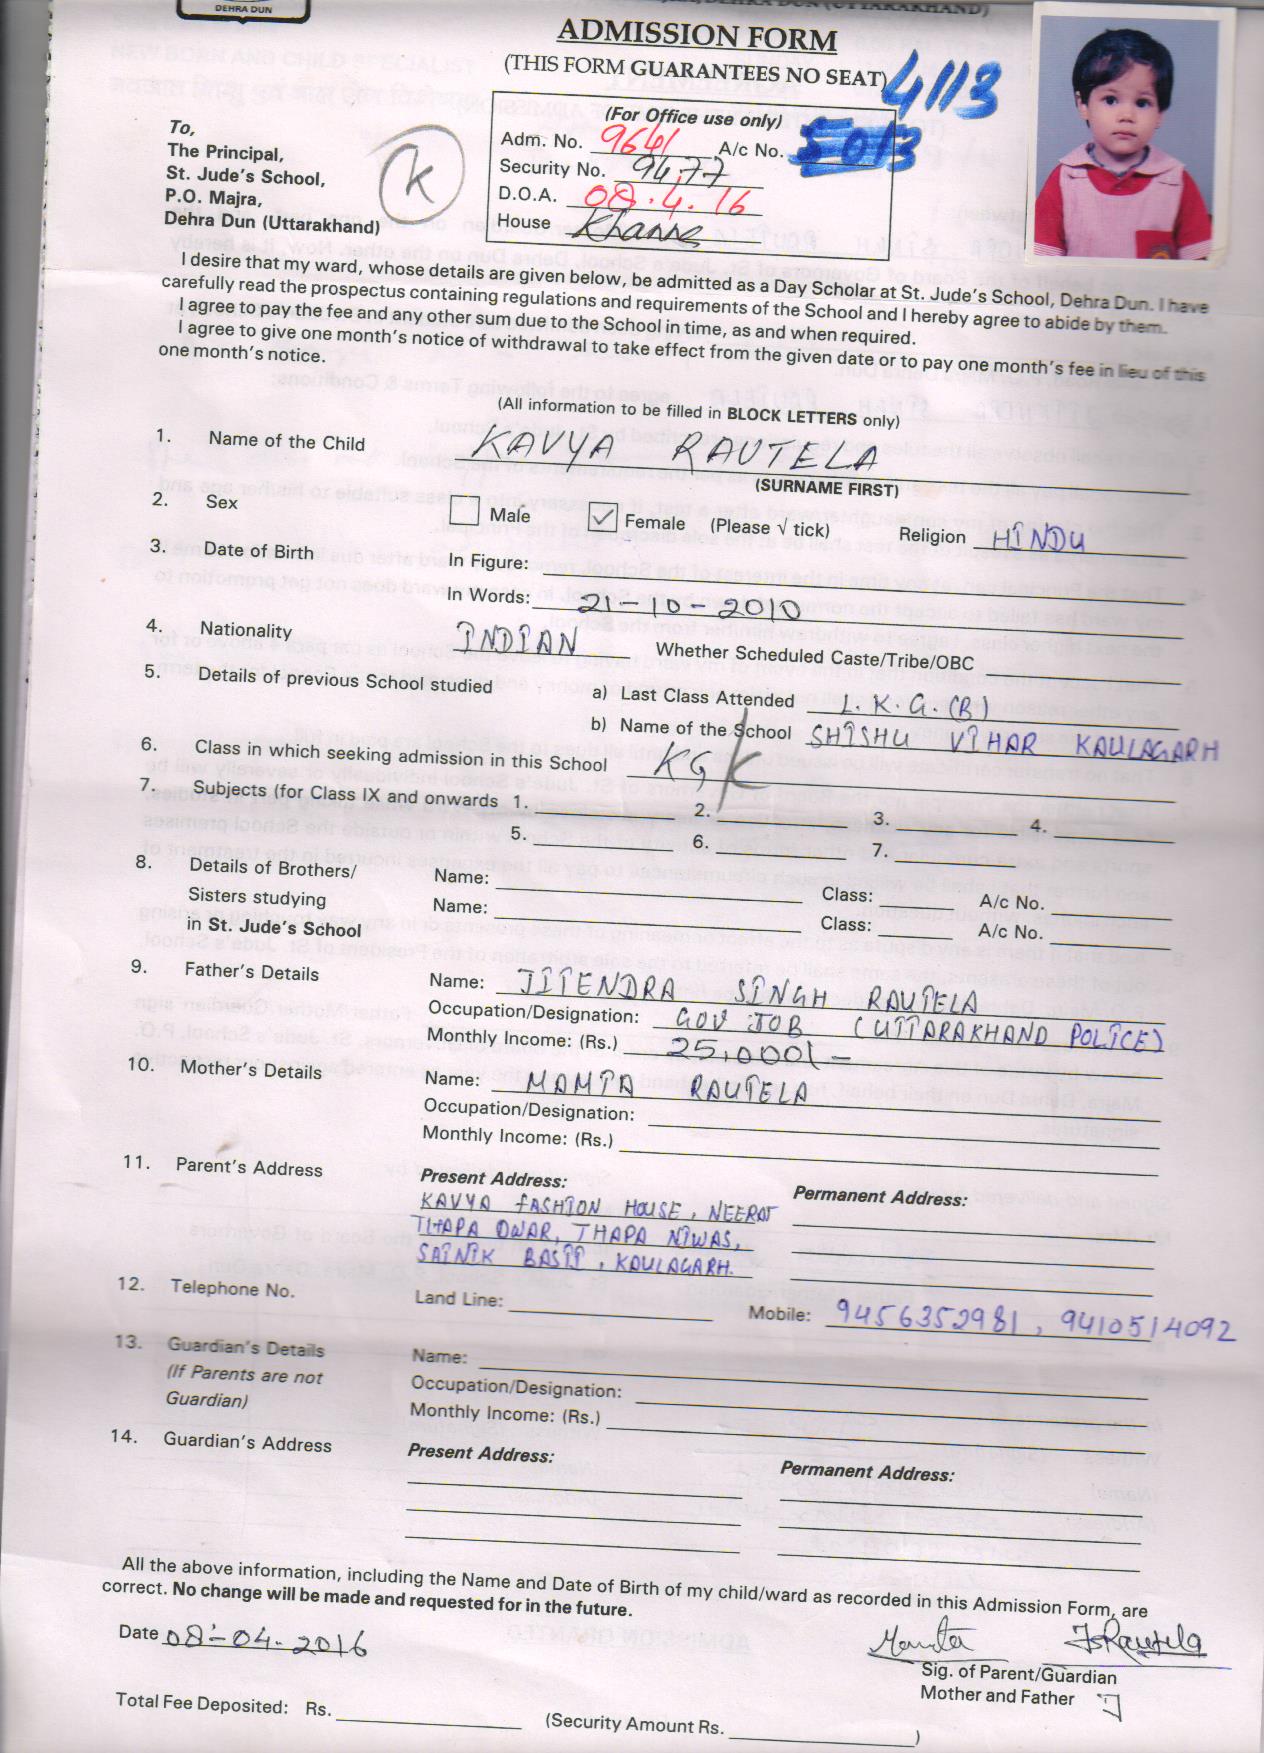 DEHRA DUN
DEHRA DUN (UTTARAKHAND)
ADMISSION FORM
(THIS FORM GUARANTEES NO SEAT)
4113
(For Office use only)
Adm. No. 9641 A/c No. 5013
Security No. 9477
D.O.A. 08.4.16
House Khanna
K
To,
The Principal,
St. Jude's School,
P.O. Majra,
Dehra Dun (Uttarakhand)
I desire that my ward, whose details are given below, be admitted as a Day Scholar at St. Jude's School, Dehra Dun. I have
carefully read the prospectus containing regulations and requirements of the School and I hereby agree to abide by them.
I agree to pay the fee and any other sum due to the School in time, as and when required.
I agree to give one month's notice of withdrawal to take effect from the given date or to pay one month's fee in lieu of this
one month's notice.
(All information to be filled in BLOCK LETTERS only)
1. Name of the Child KAVYA RAUTELA
(SURNAME FIRST)
2. Sex Male ✓ Female (Please √ tick) Religion HINDU
3. Date of Birth In Figure:
In Words: 21-10-2010
4. Nationality INDIAN Whether Scheduled Caste/Tribe/OBC
5. Details of previous School studied a) Last Class Attended L.K.G.(B)
b) Name of the School SHISHU VIHAR KAULAGARH
6. Class in which seeking admission in this School KG K
7. Subjects (for Class IX and onwards 1. 2. 3. 4.
5. 6. 7.
8. Details of Brothers/ Name: Class: A/c No.
Sisters studying Name: Class: A/c No.
in St. Jude's School
9. Father's Details Name: JITENDRA SINGH RAUTELA
Occupation/Designation: GOV JOB (UTTARAKHAND POLICE)
Monthly Income: (Rs.) 25,000/-
10. Mother's Details Name: MAMTA RAUTELA
Occupation/Designation:
Monthly Income: (Rs.)
11. Parent's Address Present Address: Permanent Address:
KAVYA FASHION HOUSE, NEERAT
THAPA DWAR, THAPA NIWAS,
SAINIK BASTI, KAULAGARH.
12. Telephone No. Land Line: Mobile: 9456352981, 9410514092
13. Guardian's Details Name:
(If Parents are not Occupation/Designation:
Guardian) Monthly Income: (Rs.)
14. Guardian's Address Present Address: Permanent Address:
All the above information, including the Name and Date of Birth of my child/ward as recorded in this Admission Form, are
correct. No change will be made and requested for in the future.
Date 08-04-2016 Mamta JSRautela
Sig. of Parent/Guardian
Mother and Father
Total Fee Deposited: Rs. (Security Amount Rs. )